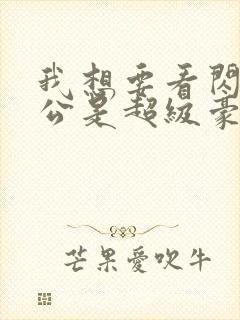 我想要看閃
公是超級豪
芒果愛吹牛